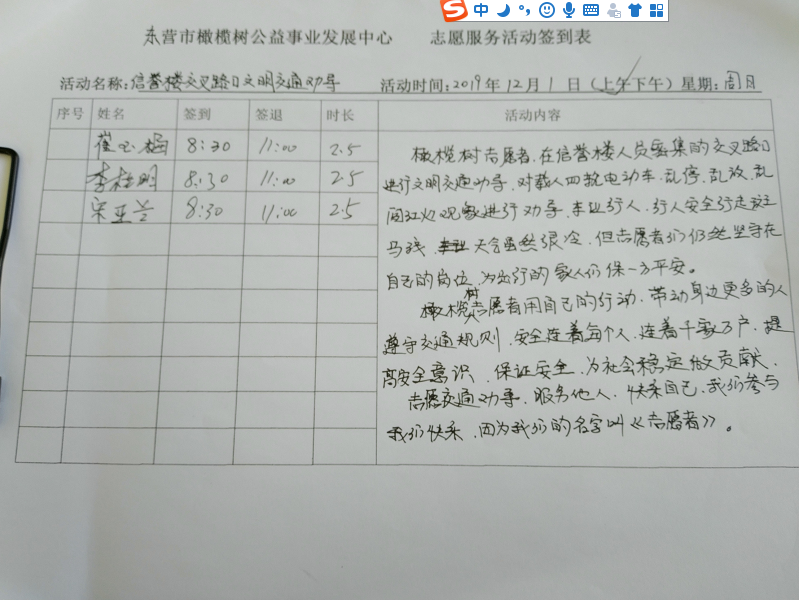 中
东营市橄榄树公益事业发展中心 志愿服务活动签到表
活动名称:信誉楼交叉路口文明交通劝导 活动时间:2019年12月1日（上午下午）星期:周日
序号 姓名 签到 签退 时长 活动内容
崔玉梅 8:30 11:00 2.5
李桂明 8:30 11:00 2.5
宋亚兰 8:30 11:00 2.5
橄榄树志愿者,在信誉楼人员密集的交叉路口
进行文明交通劝导,对载人四轮电动车,乱停,乱放,乱
闯红灯现象进行劝导,行人,行人安全行走斑
马线,天气虽然很冷,但志愿者们仍然坚守在
自己的岗位,为出行的家人们保一方平安。
橄榄树志愿者用自己的行动,带动身边更多的人
遵守交通规则,安全连着每个人,连着千家万户,提
高安全意识,保证安全,为社会稳定做贡献.
志愿交通劝导,服务他人,快乐自己,我们参与
我们快乐,因为我们的名字叫《志愿者》。